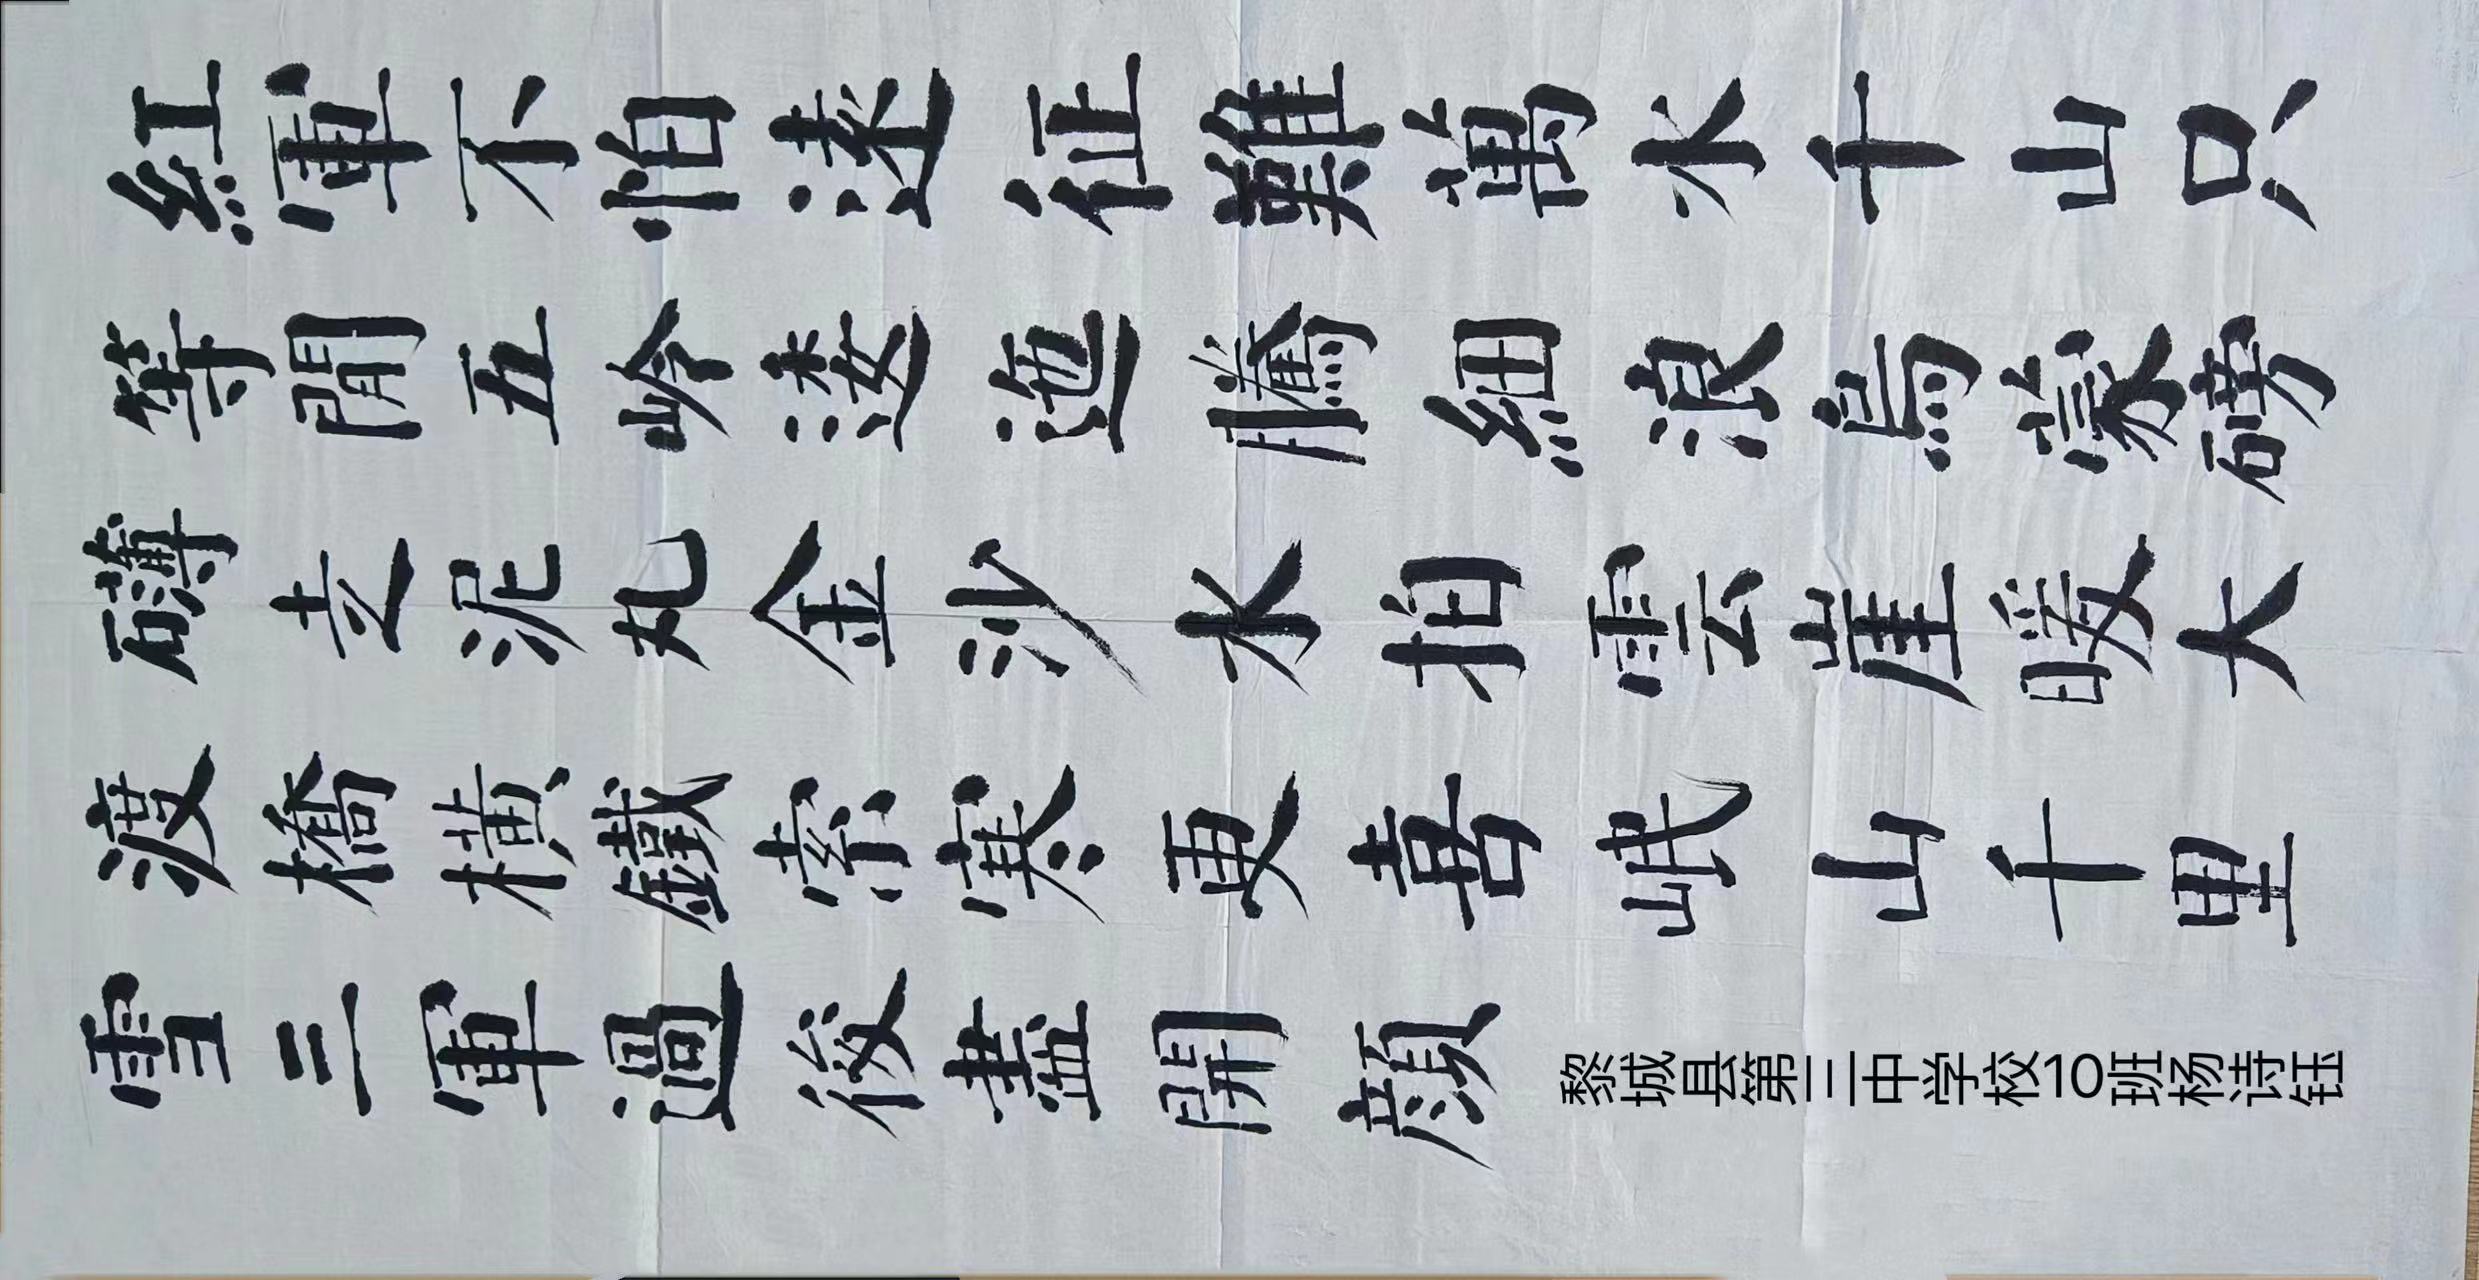 紅軍不怕遠征難萬水千山只
等閒五岭逶迤騰細浪烏蒙磅
礴走泥丸金沙水拍雲崖暖大
渡橋橫鐵索寒更喜岷山千里
雪三軍過後盡開顏
黎城县第三中学校10班杨诗钰